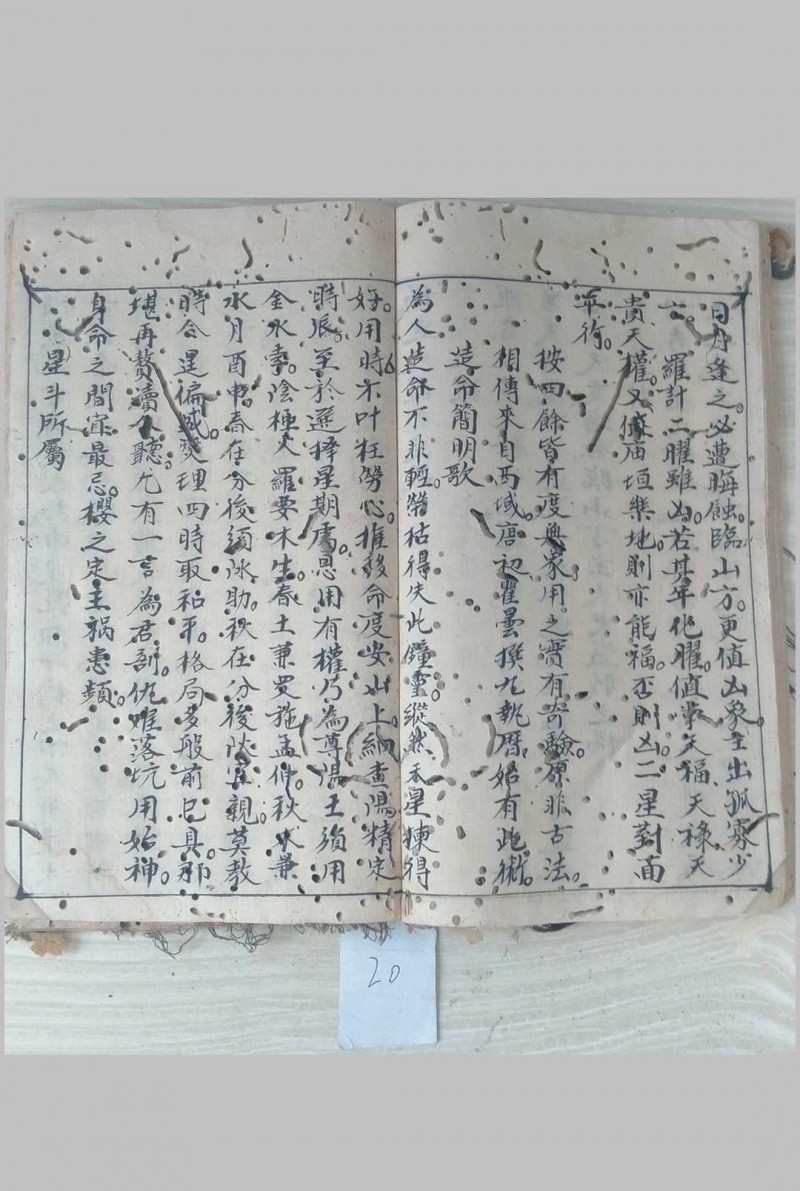 日月逢之必遭晦蝕臨山方更值凶象主出孤寡少
亡羅計二曜雖凶若其年化曜值掌天福天祿天
貴天權又催庙垣樂地則亦能福否則凶二星對面
平行
按四餘皆有度無象用之實有奇驗原非古法
相傳來自西域唐初瞿曇撰九執曆始有此術
造命簡明歌
為人造命不非輕榮枯得失此鐘靈縱然禾星揀得
好用時不叶枉勞心推移命度安山上細查陽精定
時辰至於選擇星期處恩用有權乃為尊陽土須用
金水孛陰極火羅要木生春土兼买孟仲秋水兼
水月酉申春在分後須水助秋在分後火親莫教
時令逞偏咸燮理四時取和平格局多般前已具那
堪再贅瀆人聽尤有一言為君剖仇难落坑用始神
身命之間寅最忌櫻之定主禍患頻
星斗所屬
20